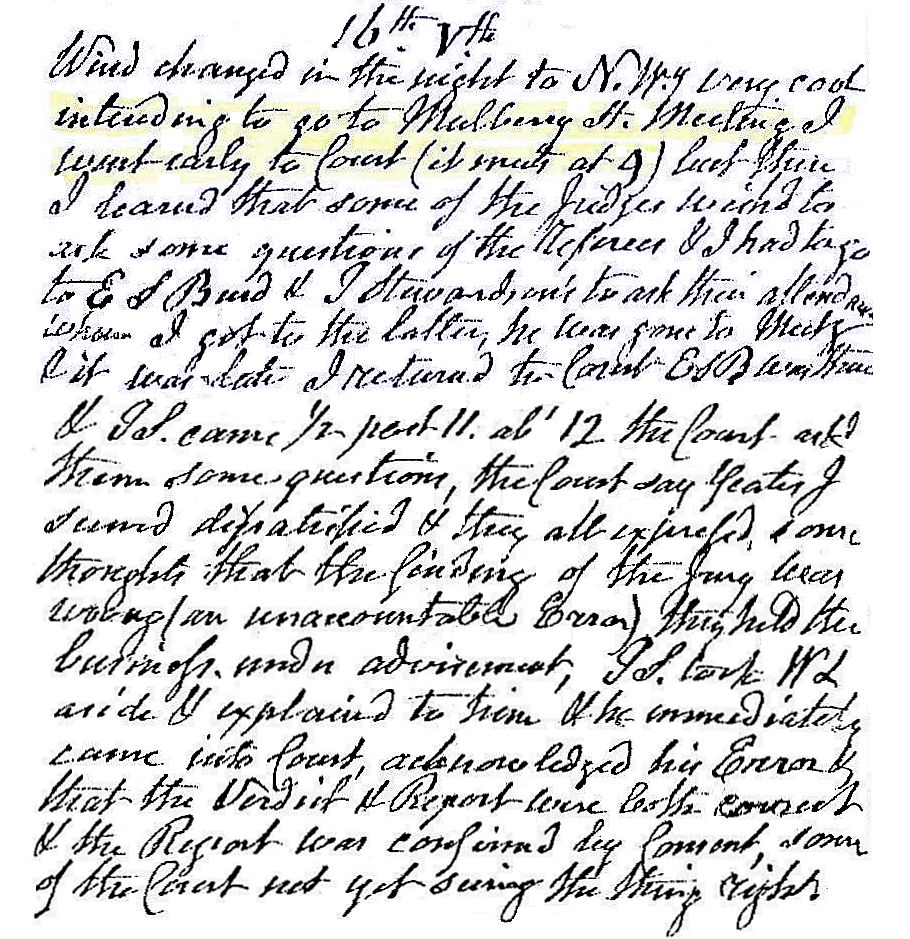 16th Vth
Wind changed in the night to N.W.y very cool
intending to go to Mulberry St. Meeting I
went early to Court (it meets at 9) but there
I learned that some of the Judges wished to
ask some questions of the Referees & I had to go
to E S Burd & T Stewardson's to ask their attendance
when I got to the latter, he was gone to Meetg
& it was late I returned to Court ESB was there
& T S. came 1/2 past 11. abt 12 the Court askd
them some questions, the Court say Yeates J
seemd dissatisfied & they all expressd, some
thoughts that the finding of the Jury was
wrong (an unaccountable Error) they held the
business, under advisement, T S. took W L
aside & explained to him & he immediately
came into Court, acknowledged his Error &
that the Verdict & Report were both correct
& the Report was confirmed by Consent, some
of the Court not yet seeing the thing right